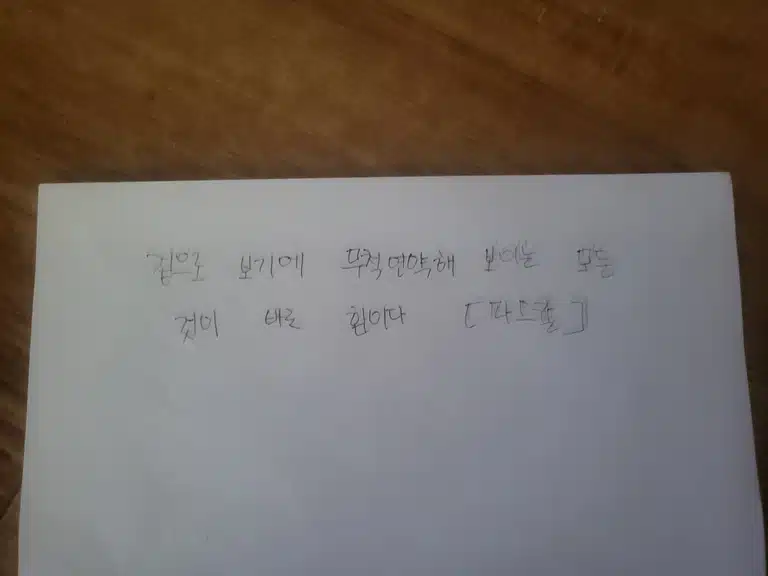 겉으로 보기에 무척연약해 보이는 모든
것이 바로 힘이다 [파스칼]